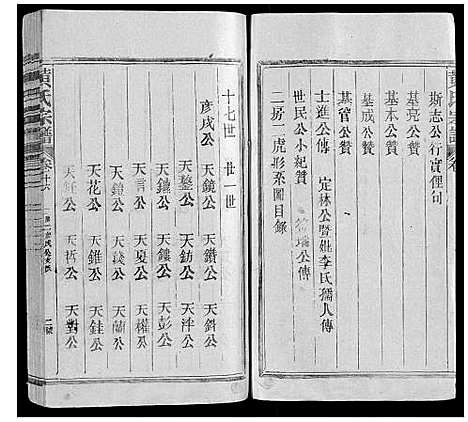 黃氏宗譜
斯志公行實俚句
基亮公贊
基本公贊
基成公贊
基官公贊
士進公傳 定林公暨妣李氏孺人傳
世民公小紀贊 公傳
二房二虎形系圖目录
十七世 廿一世
彥戌公 天鏡公 天鑽公 天錯公
天鏊公 天鈁公 天洋公
天鑣公 天鏤公 天彭公
天言公 天夏公 天權公
天鎧公 天錢公 天蘭公
天花公 天錐公 天銈公
天哲公 天對公
黃氏宗譜
二號